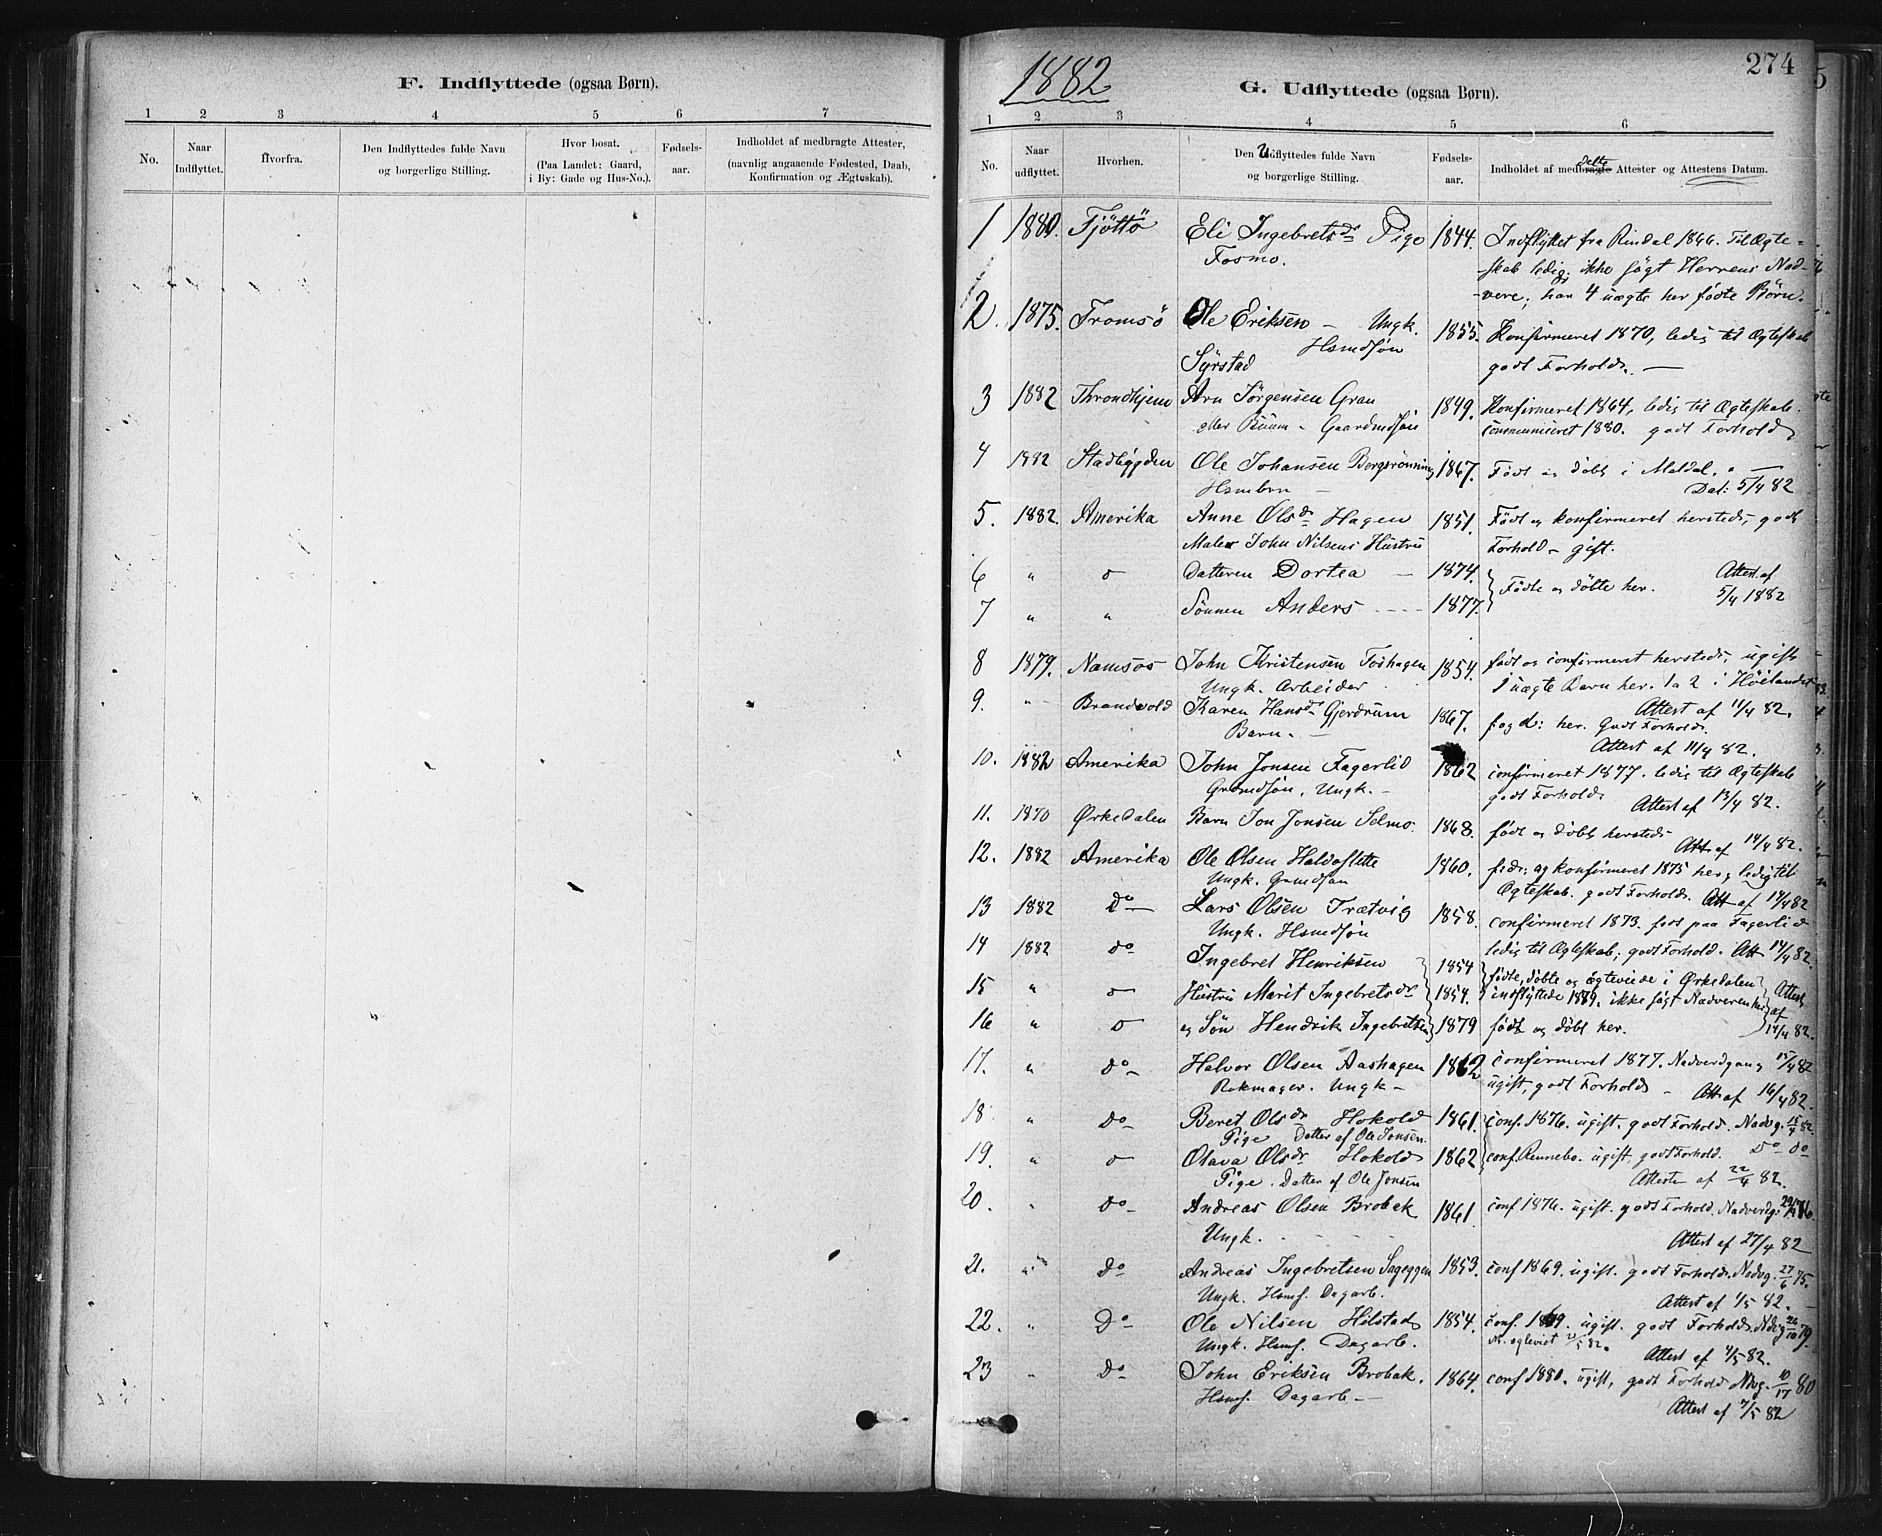 F. Indflyttede (ogsaa Børn).
1 2 3 4 5 6 7
No.
Naar Indflyttet.
Hvorfra.
Den Indflyttedes fulde Navn og borgerlige Stilling.
Hvor bosat. (Paa Landet: Gaard, i By: Gade og Hus-No.).
Fødsels-aar.
Indholdet af medbragte Attester, (navnlig angaaende Fødested, Daab, Konfirmation og Ægteskab).
274
1882
G. Udflyttede (ogsaa Børn).
1 2 3 4 5 6
No.
Naar udflyttet.
Hvorhen.
Den Udflyttedes fulde Navn og borgerlige Stilling.
Fødsels-aar.
Indholdet af meddelte Attester og Attestens Datum.
1 1880. Tjöttö Eli Ingebretsdr Pige 1844. Indflyttet fra Rindal 1866. Til Ægte-
Fosmo. skab ledig; ikke søgt Herrens Nad-
vere; har 4 uægte her fødte Børn.
2. 1875. Tromsö Ole Eriksen – Ungk. 1855. Konfirmeret 1870, ledig til Ægteskab
Hsmdsøn
Syrstad godt Forhold. —
3 1882 Throndhjem Arn Jörgensen Grau 1849. Konfirmeret 1864, ledig til Ægteskab.
eller – Gaardmdsøn communiceret 1880. godt Forhold
4 1882 Stadsbygden Ole Johansen Bergsrönning 1867. Født og døbt i Meldal. —
Hsmbrn – Dat: 5/4 82
5. 1882. Amerika Anne Olsdr Hagen 1851. Født og konfirmeret herstedt, godt
Maler John Nilsens Hustru Forhold – gift.
6 " o Datteren Dortea — 1874. Attest af
Fødte og döbte her. 5/4 1882
7 " " Sönnen Anders – – – 1877.
8 1879. Namsos John Kristensen Foshagen 1854. født og confirmeret herstedt, ugift
Ungk. Arbeider 1 uægte Barn her. 1 a 2 i Höilandet
Attest af 11/4 82.
9. " – Brandvold Karen Hansdr Gjerdrum 1867. f. og d: her. Godt Forhold.
Barn. – Attest af 11/4 82.
10. 1882 Amerika John Jonsen Fagerlid 1862 confirmeret 1877. ledig til Ægteskab
Grdmdsön, Ungk. – godt Forhold Attest af 13/4 82.
11. 1870 Ørkedalen Barn Jon Jonsen Selmo. 1868. født og döbt herstedt
Att af 14/4 82.
12. 1882 Amerika Ole Olsen Halvoslette 1860. født og konfirmeret 1875 her, ledig til
Ungk. Grmdsøn Ægteskab. godt Forhold. Att af 14/4 82
13 1882 Do — Lars Olsen Trætvig 1858. confirmeret 1873. født paa Fagerlid
Ungk. Hsmdsøn ledig til Ægteskab; godt Forhold. Att 14/4 82.
14 1882 do Ingebret Henriksen 1854 fødte, döbte og ægteviede i Ørkedalen
15 " o Hustru Marit Ingebretsdr 1854. indflyttede 1879. ikke søgt Nadveren her Attest
af
16 " o og Søn Hendrik Ingebretsen 1879 født og døbt her. 14/4 82.
17. " do – Halvor Olsen Aashagen 1862 confirmeret 1877. Nadverdgang 15/4 82
Rokmager. Ungk – ugift, godt Forhold – Att af 16/4 82.
18. " do – Beret Olsdr Hokold 1861. conf. 1876. ugift. godt Forhold. Nadvg.
Pige Datter af Ole Jonsen.
19. " o Olava Olsdr Hokold 1862 conf. Rennebo. ugift, godt Forhold. Do do
Pige. Datter af Ole Jonsen Atteste af 22/4 82.
20. " do – Andreas Olsen Brobak 1861. conf 1876. ugift. godt Forhold. Nadverdg.
Ungk. Attest af 27/4 82
21. " do – Andreas Ingebretsen Sageggen 1853. conf 1869. ugift. godt Forhold. Nadvg. 27/6 75.
Ungk. Hsms. Dagarb. Attest af 1/5 82.
22. " Do – Ole Nilsen Hilstad 1854. conf. 1869. ugift. godt Forhold. Ndvg 79.
Ungk. Hsms. Dagarb. Attest af 4/5 82.
23 " do – John Eriksen Brobak. 1864. conf 1880. ugift, godt Forhold Ndvg. 10/17 80
Hsms. Dagarb – Attest af 7/5 82